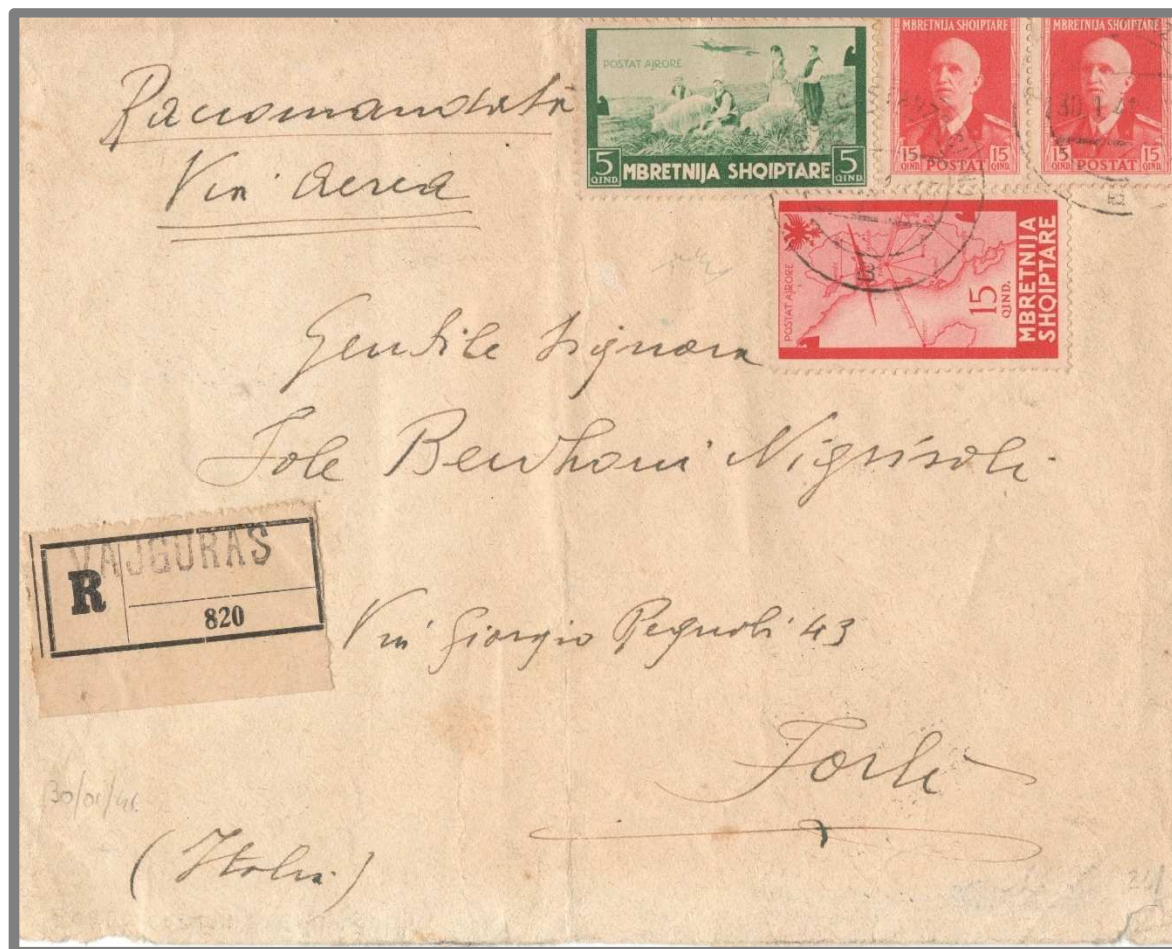 Raccomandata
Via Aerea
POSTAT AJRORE
5 QIND MBRETNIJA SHQIPTARE 5 QIND
MBRETNIJA SHQIPTARE
15 QIND. POSTAT 15 QIND.
MBRETNIJA SHQIPTARE
15 QIND. POSTAT 15 QIND.
30.1.41
POSTAT AJRORE
15 QIND.
MBRETNIJA
SHQIPTARE
Gentile Signora
Iole Nigrisoli
VAJGURAS
R
820
Via Giorgio Regnoli 43
Forlì
30/01/41
(Italia)